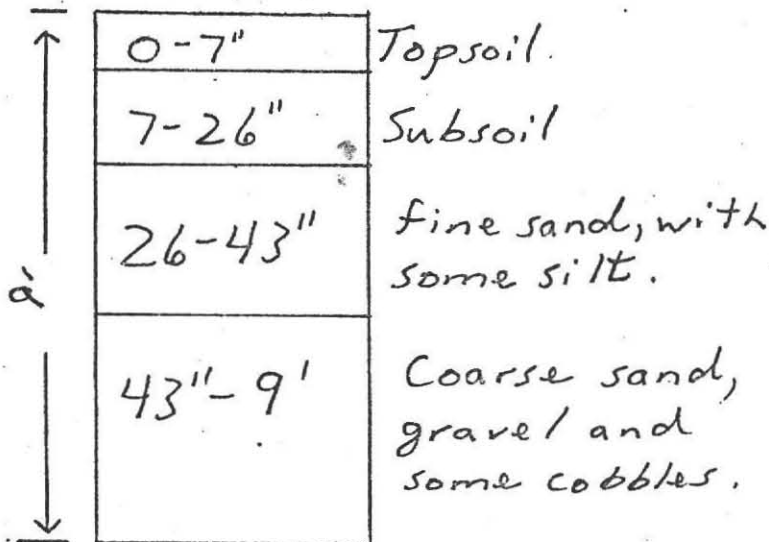 0-7" Topsoil.
7-26" Subsoil
26-43" fine sand, with
some silt.
43"-9' Coarse sand,
gravel and
some cobbles.